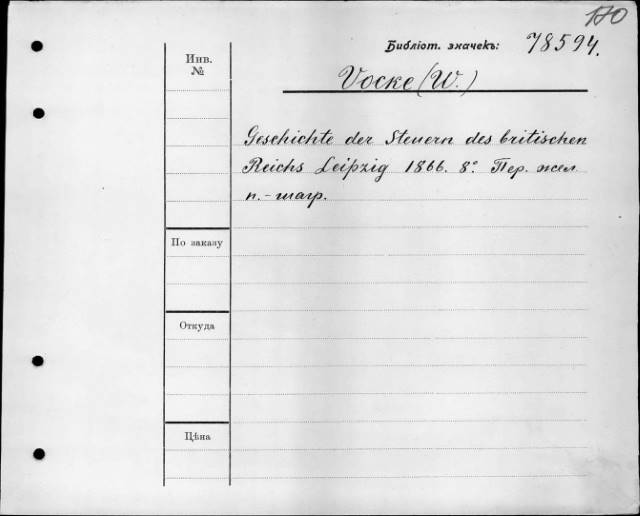 170
Библіот. значекъ: 78594.
Инв.
№
Vocke (W.)
Geschichte der Steuern des britischen
Reichs Leipzig 1866. 8º. Пер. жел
п.-шагр.
По заказу
Откуда
Цѣна